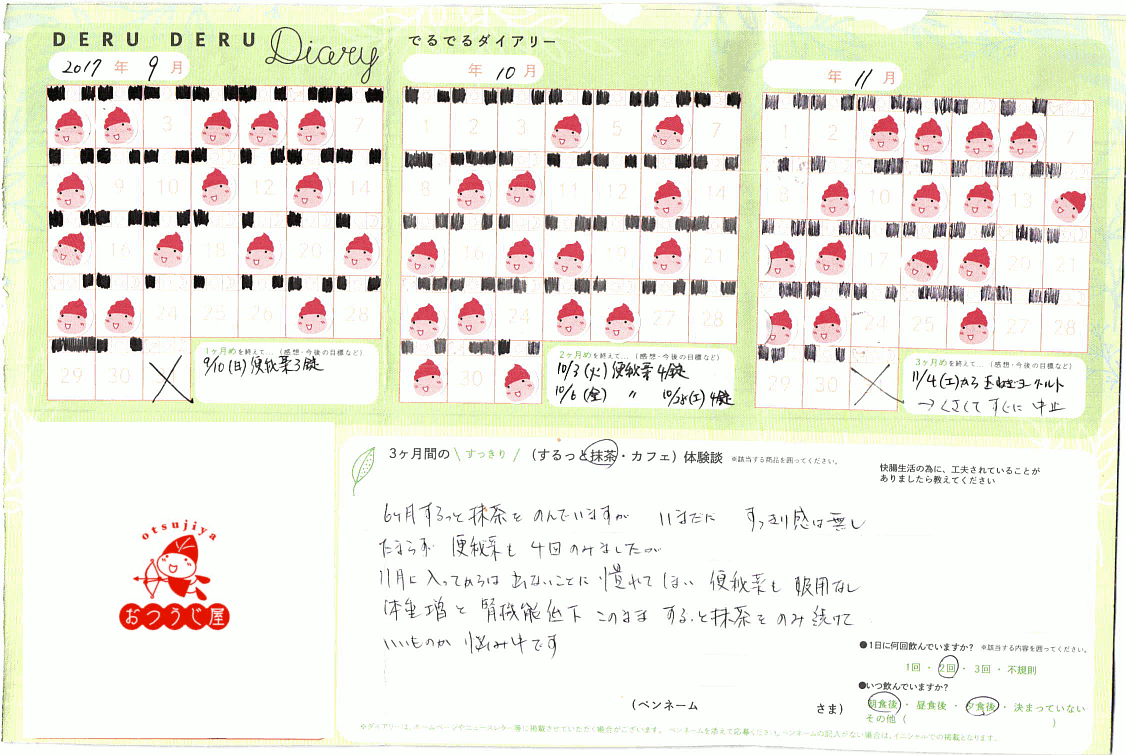 DERU DERU Diary でるでるダイアリー
2017年 9月
年 10月
年 11月
3 7
9 10 12 14
16 18 20
24 25 26 28
29 30
1 2 3 5 7
8 11 12 14
16 19 21
24 27 28
30
1 2 7
8 10 13
17 20 21
24 25 27 28
29 30
1ヶ月めを終えて…(感想・今後の目標など)
9/10(日)便秘薬3錠
2ヶ月めを終えて…(感想・今後の目標など)
10/3(火)便秘薬4錠
10/6(金) 〃 10/28(土)4錠
3ヶ月めを終えて…(感想・今後の目標など)
11/4(土)から ヨーグルト
→くさくてすぐに中止
otsujiya
おつうじ屋
3ヶ月間の\すっきり/(するっと抹茶・カフェ)体験談 ※該当する商品を囲ってください。
快腸生活の為に、工夫されていることが
ありましたら教えてください
6ヶ月するっと抹茶をのんでいますが いまだに すっきり感は無し
たまらず 便秘薬も 4回のみましたが
11月に入ってからは出ないことに慣れてしまい 便秘薬も服用なし
体重増と腎機能低下 このまま するっと抹茶をのみ続けて
いいものか 悩み中です
●1日に何回飲んでいますか? ※該当する内容を囲ってください。
1回・2回・3回・不規則
●いつ飲んでいますか?
朝食後・昼食後・夕食後・決まっていない
その他( )
(ペンネーム さま)
※ダイアリーは、ホームページやニュースレター等に掲載させていただく場合がございます。 ペンネームを添えて応募ください。ペンネームの記入がない場合は、イニシャルでの掲載となります。